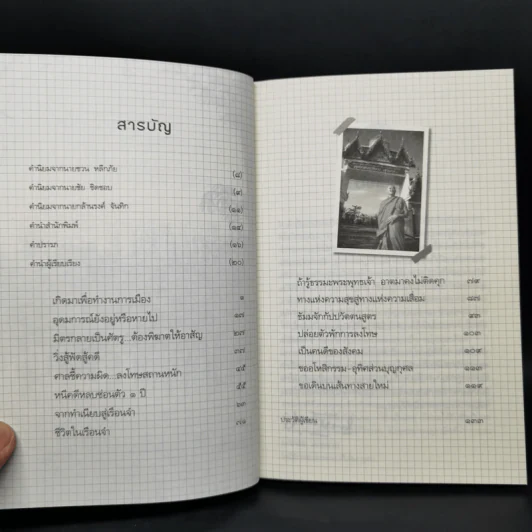 สารบัญ
คำนิยมจากนายชวน หลีกภัย (๘)
คำนิยมจากนายชัย ชิดชอบ (๙)
คำนิยมจากนายกล้านรงค์ จันทิก (๑๑)
คำนำสำนักพิมพ์ (๑๔)
คำปรารภ (๑๖)
คำนำผู้เรียบเรียง (๒๐)
เกิดมาเพื่อทำงานการเมือง ๑
อุดมการณ์ยังอยู่หรือหายไป ๑๗
มิตรกลายเป็นศัตรู...ต้องพิฆาตให้อาสัญ ๒๗
วิ่งสู้ฟัดสู้คดี ๓๗
ศาลชี้ความผิด...ลงโทษสถานหนัก ๔๕
หนีคดีหลบซ่อนตัว ๑ ปี ๕๕
จากทำเนียบสู่เรือนจำ
ชีวิตในเรือนจำ ๗๑
ถ้ารู้ธรรมะพระพุทธเจ้า อาตมาคงไม่ติดคุก ๗๙
ทางแห่งความสุขสู่ทางแห่งความเสื่อม ๘๗
ธัมมจักกัปปวัตตนสูตร ๙๓
ปล่อยตัวพักการลงโทษ ๑๐๓
เป็นคนดีของสังคม ๑๐๙
ขออโหสิกรรม-อุทิศส่วนบุญกุศล ๑๑๕
ขอเดินบนเส้นทางสายใหม่ ๑๑๙
ประวัติผู้เขียน ๑๓๓